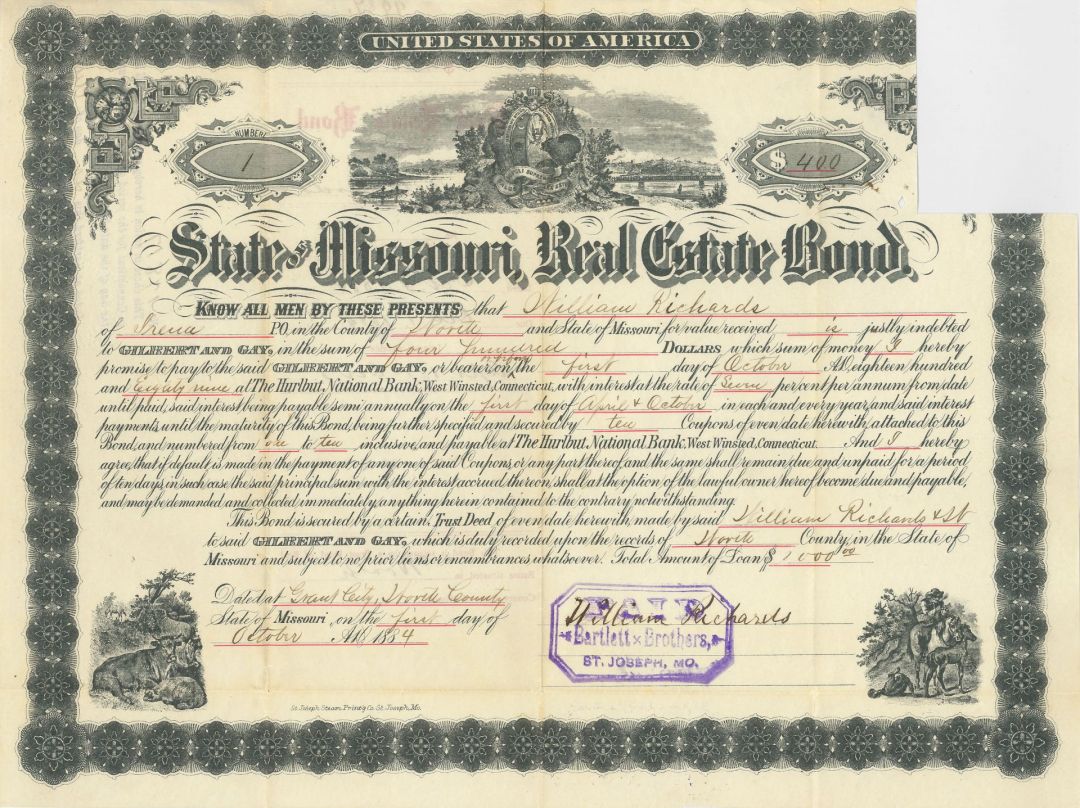 UNITED STATES OF AMERICA
NUMBER
1
$ 400
State of Missouri, Real Estate Bond.
KNOW ALL MEN BY THESE PRESENTS that William Richards
of Irena P.O. in the County of Worth and State of Missouri for value received is justly indebted
to GILBERT AND GAY, in the sum of four hundred DOLLARS which sum of money I hereby
promise to pay to the said GILBERT AND GAY, or bearer, on the first day of October A.D. eighteen hundred
and Eighty nine at The Hurlbut, National Bank, West Winsted, Connecticut, with interest at the rate of Seven per cent per annum from date
until paid, said interest being payable semi annually on the first day of April & October in each and every year, and said interest
payments until the maturity of this Bond, being further specified and secured by ten Coupons of even date herewith, attached to this
Bond, and numbered from one to ten inclusive, and payable at The Hurlbut, National Bank, West Winsted, Connecticut. And I hereby
agree, that if default is made in the payment of any one of said Coupons, or any part thereof, and the same shall remain due and unpaid for a period
of ten days, in such case, the said principal sum with the interest accrued thereon, shall at the option of the lawful owner hereof become due and payable,
and may be demanded and collected immediately, anything herein contained to the contrary notwithstanding.
This Bond is secured by a certain Trust Deed of even date herewith, made by said William Richards &
to said GILBERT AND GAY, which is duly recorded upon the records of Worth County in the State of
Missouri and subject to no prior liens or encumbrances whatsoever. Total Amount of Loan $ 1000 00
Dated at Grant City, Worth County
State of Missouri, on the first day of
October A.D. 1884
William Richards
PAID
Bartlett Brothers,
ST. JOSEPH, MO.
St. Joseph Steam Printg Co. St. Joseph, Mo.